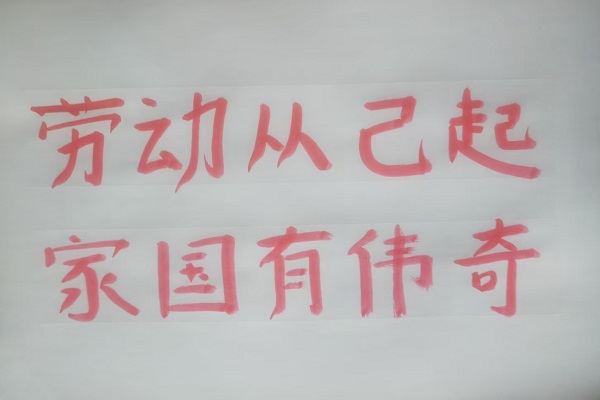 劳动从己起
家国有伟奇